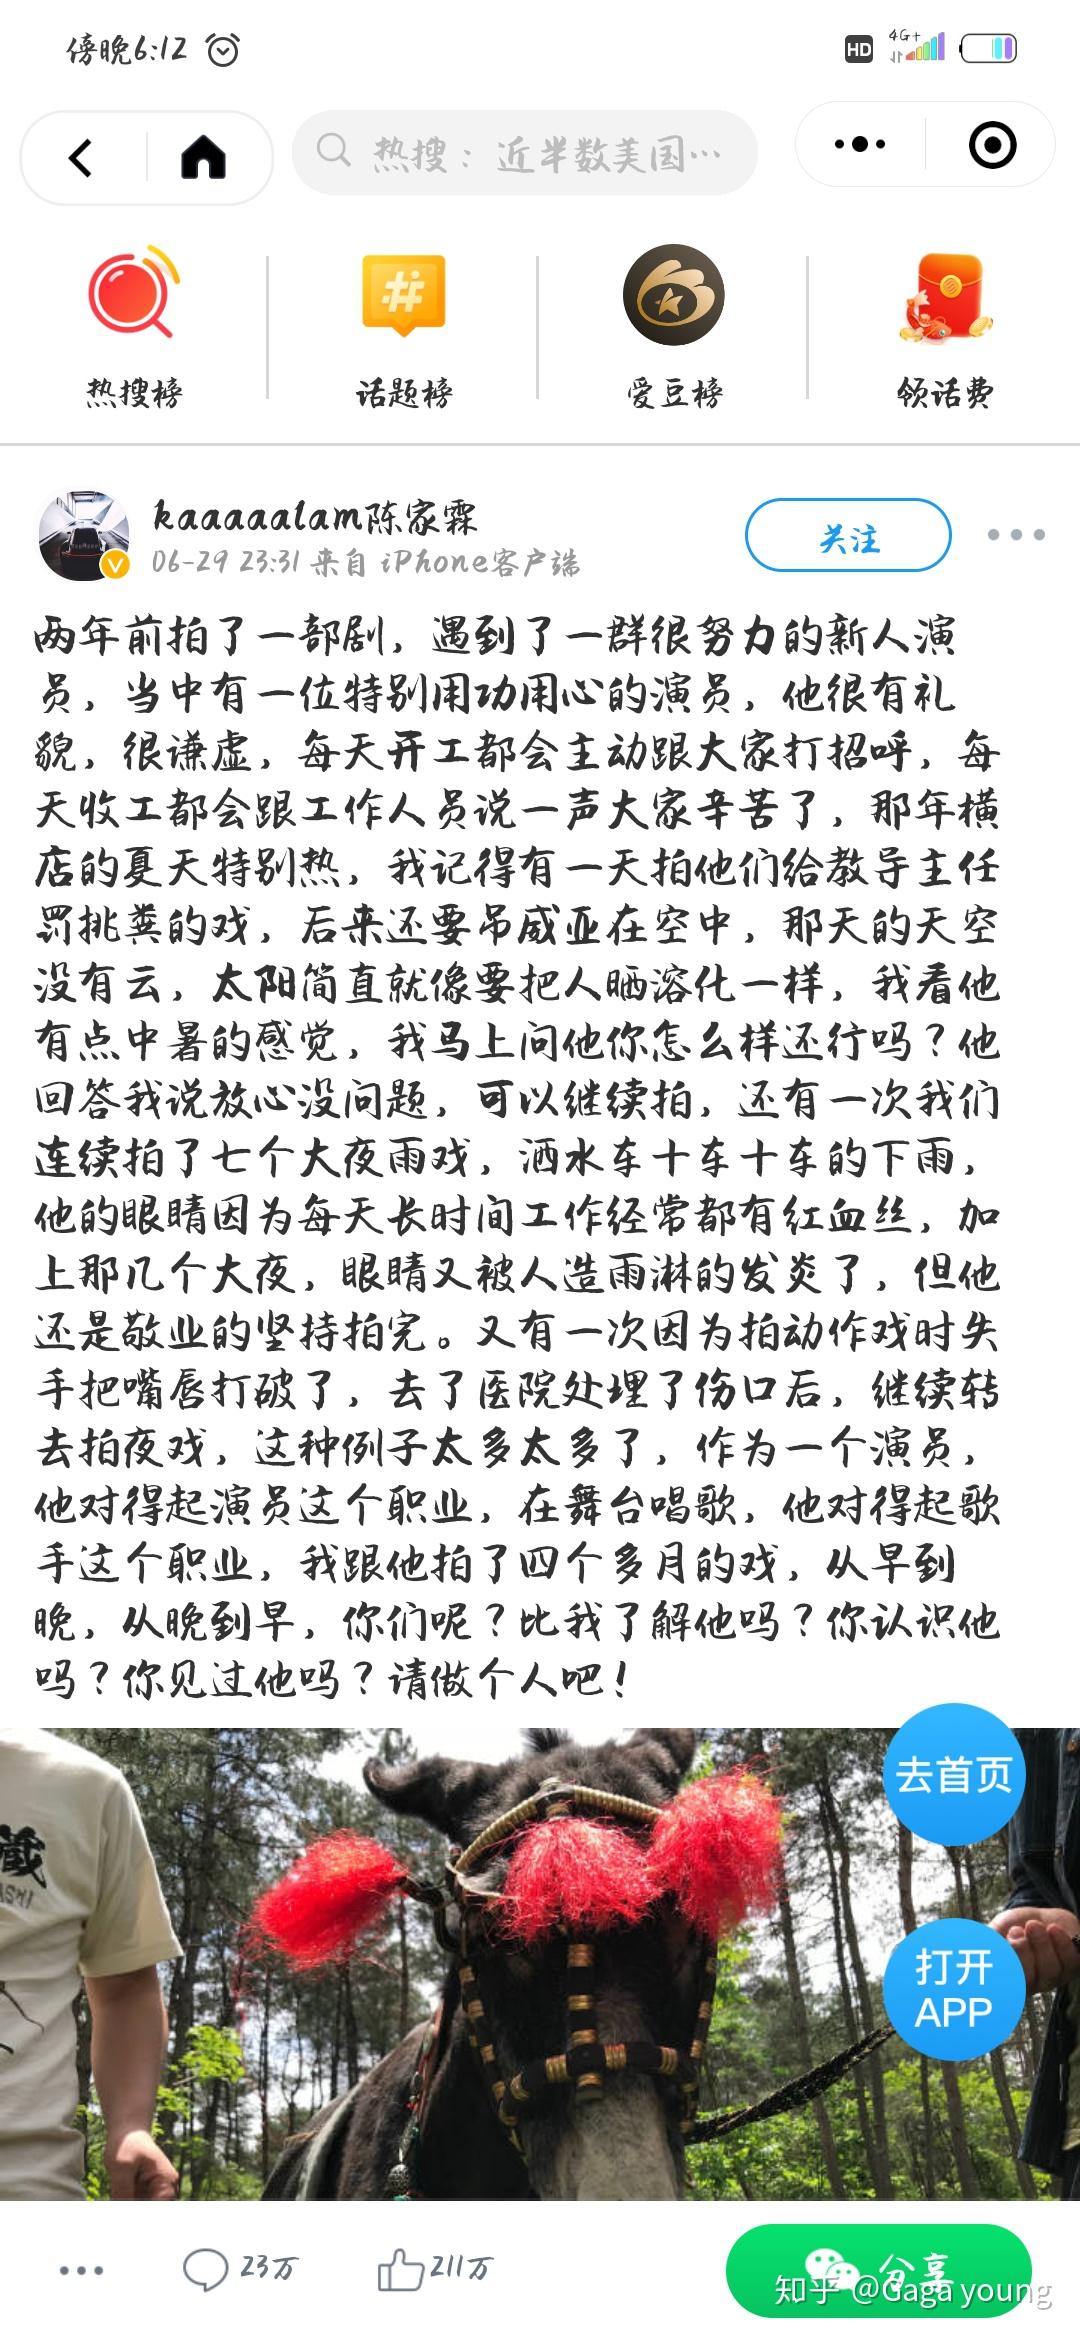 傍晚6:12
HD 4G+
热搜：近半数美国…
热搜榜 话题榜 爱豆榜 领话费
kaaaaalam陈家霖
关注
06-29 23:31 来自 iPhone客户端
两年前拍了一部剧，遇到了一群很努力的新人演
员，当中有一位特别用功用心的演员，他很有礼
貌，很谦虚，每天开工都会主动跟大家打招呼，每
天收工都会跟工作人员说一声大家辛苦了，那年横
店的夏天特别热，我记得有一天拍他们给教导主任
罚挑粪的戏，后来还要吊威亚在空中，那天的天空
没有云，太阳简直就像要把人晒溶化一样，我看他
有点中暑的感觉，我马上问他你怎么样还行吗？他
回答我说放心没问题，可以继续拍，还有一次我们
连续拍了七个大夜雨戏，洒水车十车十车的下雨，
他的眼睛因为每天长时间工作经常都有红血丝，加
上那几个大夜，眼睛又被人造雨淋的发炎了，但他
还是敬业的坚持拍完。又有一次因为拍动作戏时失
手把嘴唇打破了，去了医院处理了伤口后，继续转
去拍夜戏，这种例子太多太多了，作为一个演员，
他对得起演员这个职业，在舞台唱歌，他对得起歌
手这个职业，我跟他拍了四个多月的戏，从早到
晚，从晚到早，你们呢？比我了解他吗？你认识他
吗？你见过他吗？请做个人吧！
去首页
藏
打开
APP
23万 211万 分享
知乎 @Gaga young